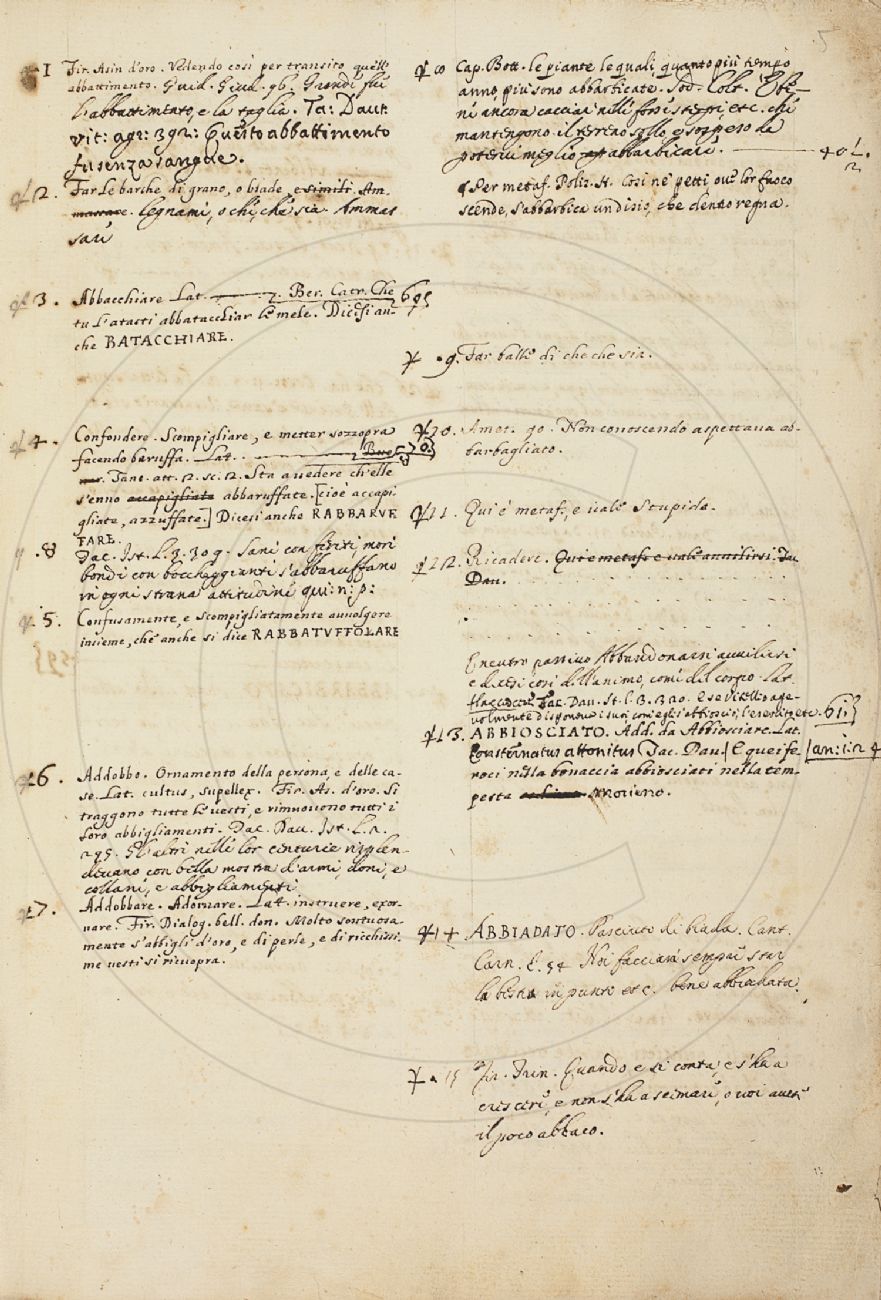 5
1 Fir. Asin d'oro. Vedendo così per transito quello
abbattimento. Guid. Giud. 96. Grande fu
l'abbattimento, e la taglia. Ta: Dau:
vit: agr: 392: Questo abbattimento
fu senza sangue.
2. Far le barche di grano, o biade, e simili. Am-
massare. legnami, o chi, che sia. Ammas
sare
3. Abbacchiare Lat. Ber. Catr. Che 69
tu l'atasti abbatacchiar le mele. Dicesi an-
che BATACCHIARE.
4. Confondere. Scompigliare, e metter sozzopra
facendo baruffa. Lat. 70
Tanc. att. 2. sc. 2. Sta a vedere ch'elle
s'enno accapigliate abbaruffate. [cioè accapi
gliate, azzuffate.] Dicesi anche RABBARUF
FARE.
8 Tac. Ist. L. 3. 309. Sani con feriti, mori
bondi con boccheggianti s'abbaruffano
in ogni strana attitudine qui: n: p:
5. Confusamente, e scompigliatamente avvolgere
insieme, che anche si dice RABBATUFFOLARE
6. Addobbo. Ornamento della persona, e delle ca-
se. Lat. cultus, supellex. Fir. As. d'oro. Si
traggono tutte le vesti, e rimuovono tutti i
loro abbigliamenti. Tac. Dav. Ist. L. 2.
295. Gl'altri nelle lor centurie risplen-
devano con bella mostra d'armi, doni, e
collane, e abbigliamenti
7. Addobbare. Adornare. Lat. instruere, exor-
nare. Fir. Dialog. bell. don. Molto sontuosa-
mente s'abbigli d'oro, e di perle, e di ricchissi-
me vesti si ricuopra.
Cap. Bott. le piante le quali, quanto più tempo
anno, più sono abbarbicate. Sod. Colt.
ne ancora cacciar nelle forme sterpi, etc. che
mantengono il terreno sollo, e sospeso da
potervi meglio abbarbicare.
Per metaf. Poliz. st. Così ne petti, ove lor fuoco
scende, s'abbarbica un disio, che dentro regna.
9. Far balle di che che sia.
10. Amet. 90. Non conoscendo aspettava ab-
barbagliato.
11. Qui è metaf., e vale Stupido.
12. Ricadere. Qui è metaf. e vale avvilirsi. Ta
Dav.
E neutro passivo Abbandonarsi avvilirsi
e dicesi così dell'animo, come del corpo lat.
flaccescere Tac. Dav. St. l. 3. 320. E se Vitellio age-
volmente disponeva i suoi come egli abbiosciò, l'esercito etc. 61.
13. ABBIOSCIATO. Add. da Abbiosciare. Lat.
consternatus attonitus Tac. Dav. E quei fe an: 1: 24
roci nella bonaccia abbiosciati nella tem-
pesta morieno.
14 ABBIADATO. Pasciuto di biada. Cant.
Carn. l. 54 Noi facciam sempre star
la bestia in punto etc. bene abbiadata.
15 Fir. Trin. Quando e si conta, e s'ha a
crescere, e non s'ha a scemare, o voi avete
il poco abbaco.